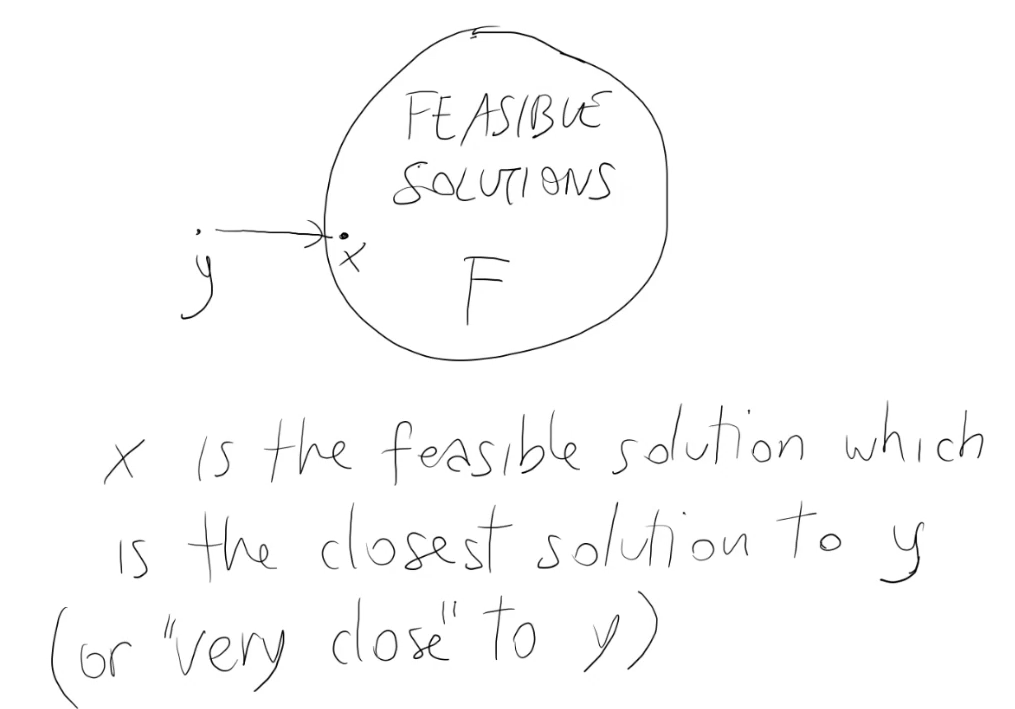 FEASIBLE
SOLUTIONS
y
x
F
x is the feasible solution which
is the closest solution to y
(or "very close" to y)